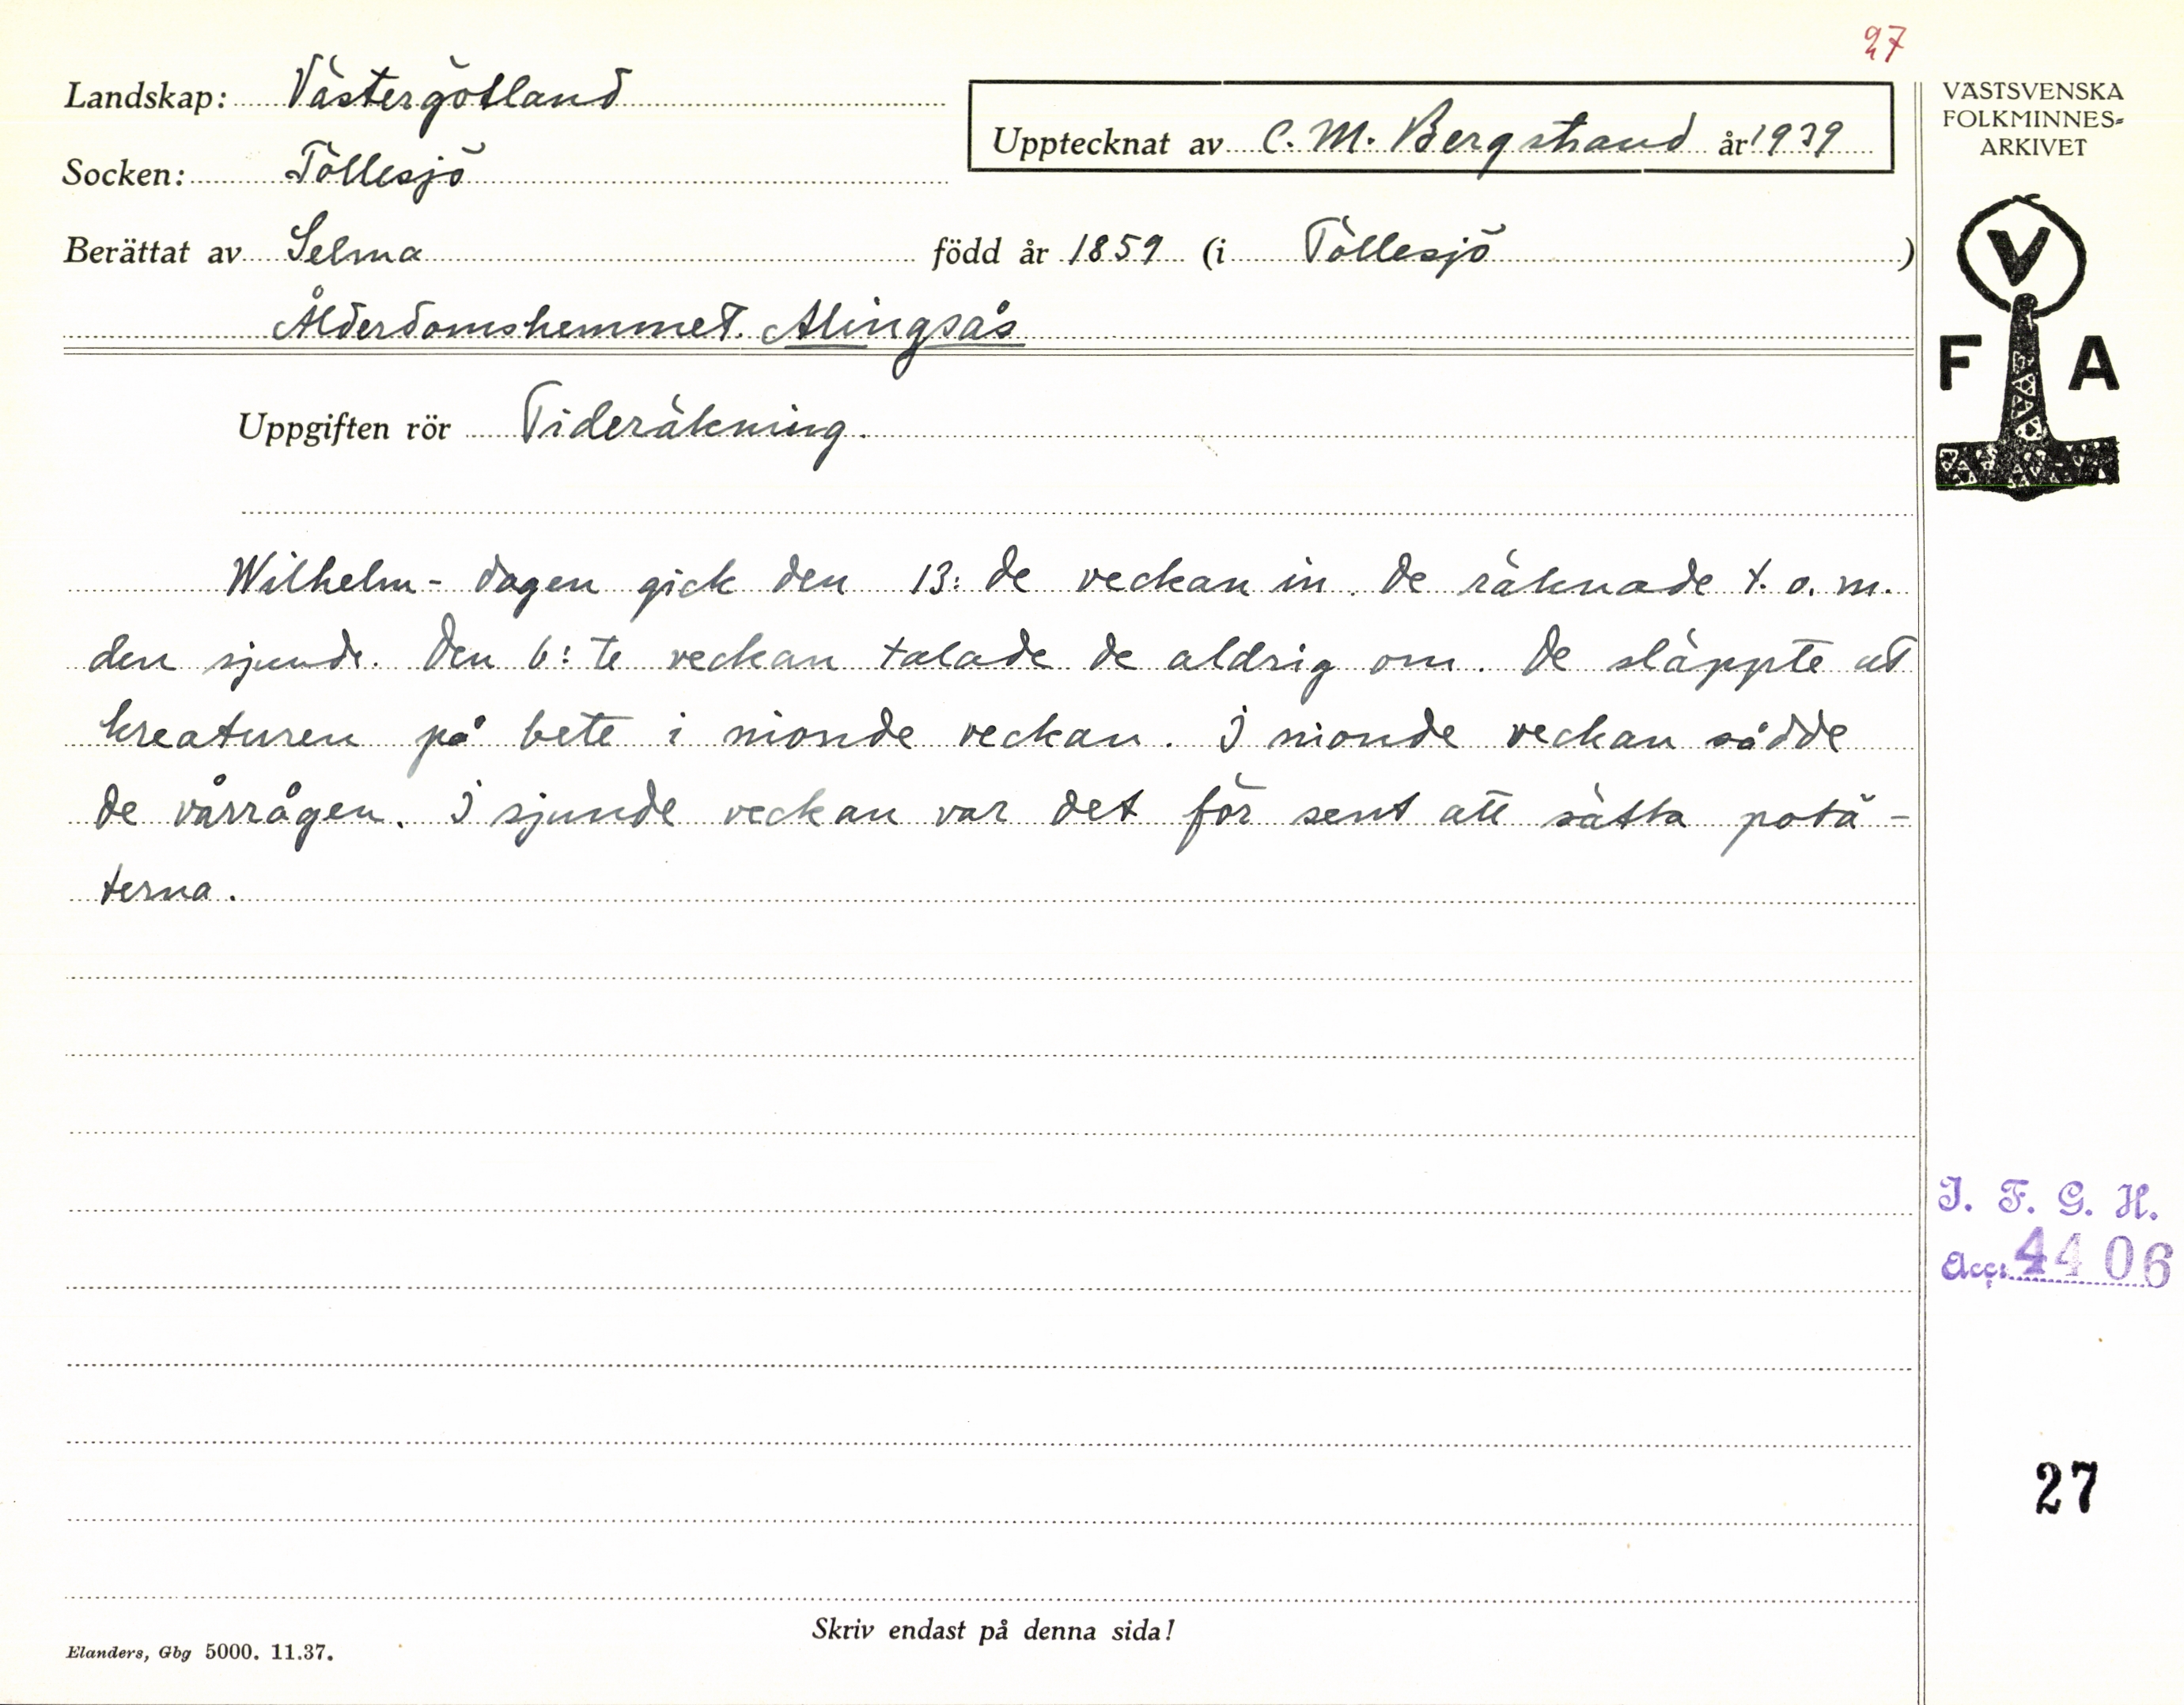 27
Landskap: Västergötland
Upptecknat av C. M. Bergstrand år 1939
Socken: Töllesjö
Berättat av Selma född år 1859 (i Töllesjö)
Ålderdomshemmet. Alingsås
Uppgiften rör Tideräkning.
Wilhelm-dagen gick den 13:de veckan in. De räknade t. o. m.
den sjunde. Den 6:te veckan talade de aldrig om. De släppte ut
kreaturen på bete i nionde veckan. I nionde veckan sådde
de vårrågen. I sjunde veckan var det för sent att sätta potä-
terna.
Skriv endast på denna sida!
Elanders, Gbg 5000. 11.37.
VÄSTSVENSKA
FOLKMINNES-
ARKIVET
V
F A
I. F. G. H.
Acc: 4406
27